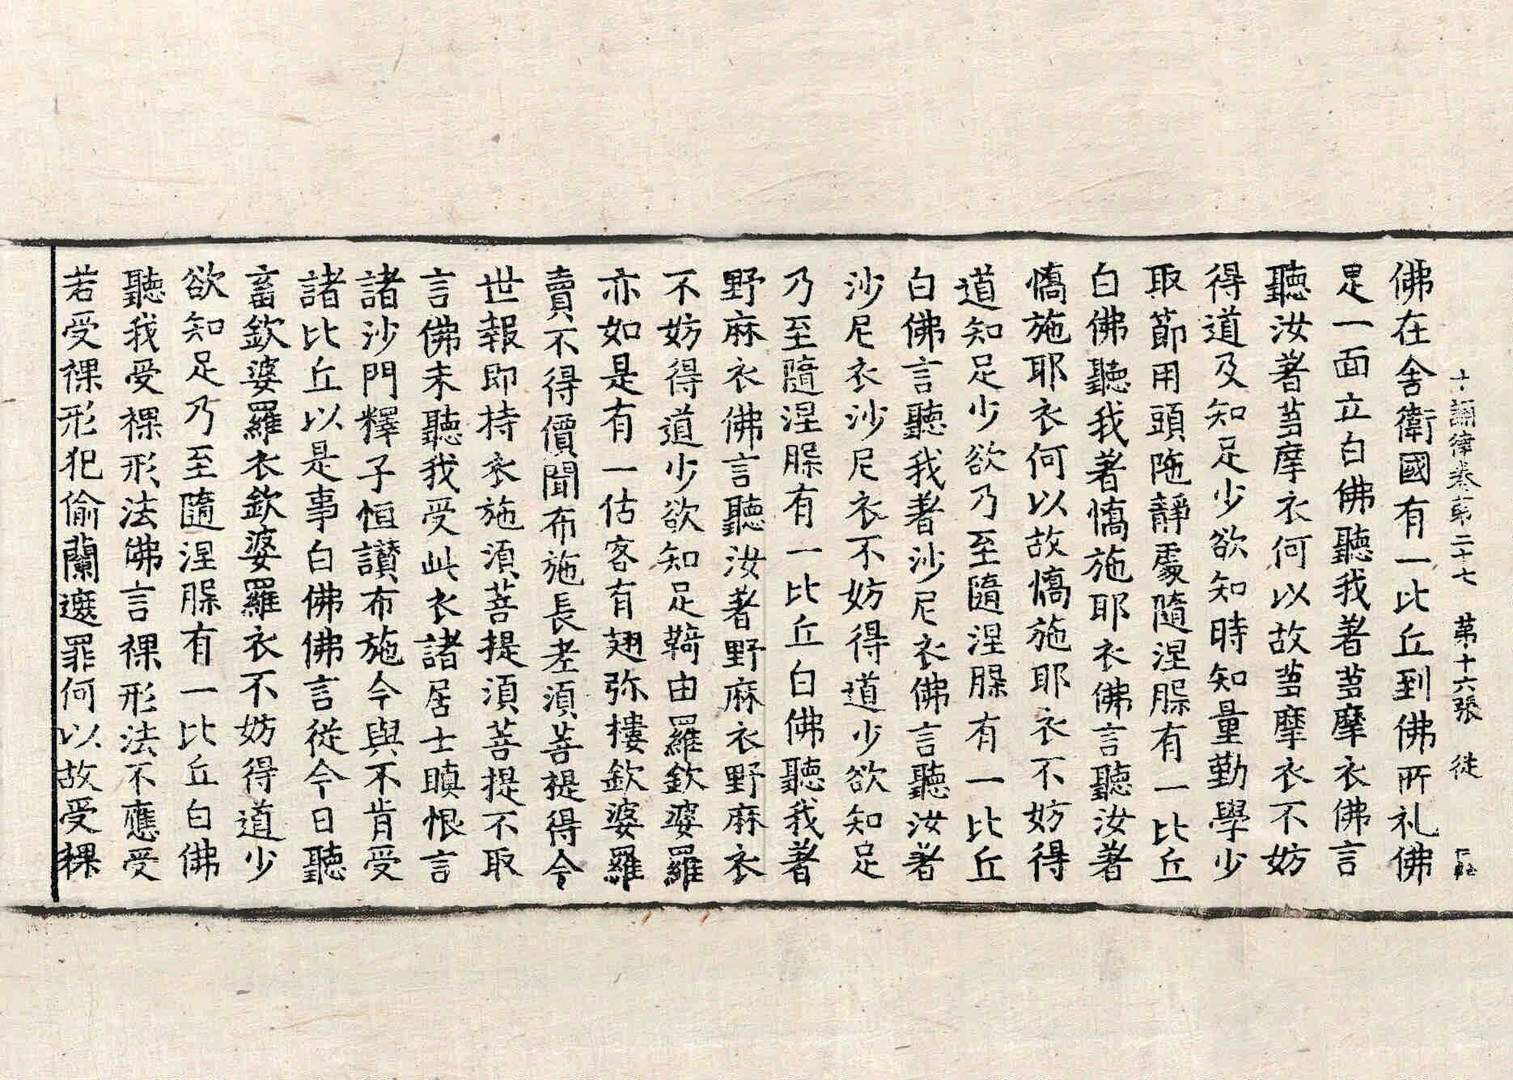 十誦律卷第二十七　第十六張　徒
佛在舍衛國有一比丘到佛所礼佛
足一面立白佛聽我著蒭摩衣佛言
聽汝著蒭摩衣何以故蒭摩衣不妨
得道及知足少欲知時知量勤學少
取節用頭陁靜處隨涅槃有一比丘
白佛聽我著憍施耶衣佛言聽汝著
憍施耶衣何以故憍施耶衣不妨得
道知足少欲乃至隨涅槃有一比丘
白佛言聽我著沙尼衣佛言聽汝著
沙尼衣沙尼衣不妨得道少欲知足
乃至隨涅槃有一比丘白佛聽我著
野麻衣佛言聽汝著野麻衣野麻衣
不妨得道少欲知足鞊由羅欽婆羅
亦如是有一估客有翅弥樓欽婆羅
賣不得價聞布施長老須菩提得今
世報即持衣施須菩提須菩提不取
言佛未聽我受此衣諸居士瞋恨言
諸沙門釋子恒讃布施今與不肯受
諸比丘以是事白佛佛言從今日聽
畜欽婆羅衣欽婆羅衣不妨得道少
欲知足乃至隨涅槃有一比丘白佛
聽我受裸形法佛言裸形法不應受
若受裸形犯偷蘭遮罪何以故受裸